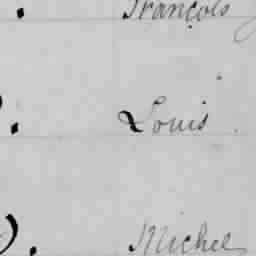 François
Louis
Michel